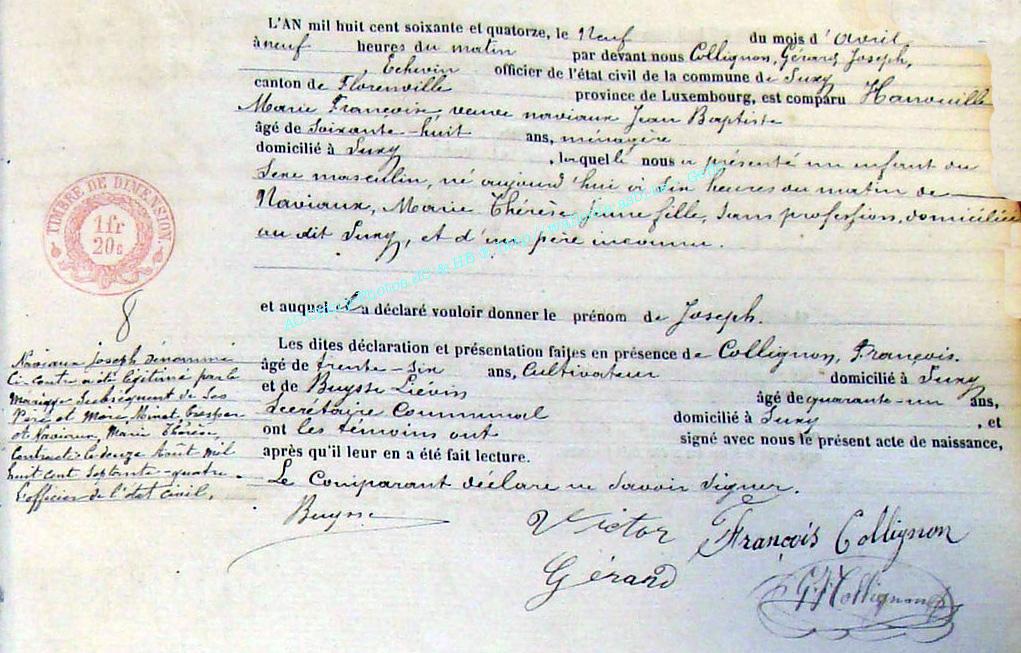 L'AN mil huit cent soixante et quatorze, le Neuf du mois d'avril
à neuf heures du matin par devant nous Collignon, Gérard Joseph,
Echevin officier de l'état civil de la commune de Suxy
canton de Florenville province de Luxembourg, est comparu Hanouille
Marie Françoise, veuve naviaux Jean Baptiste
âgé de Soixante-huit ans, ménagère
domicilié à Suxy, laquelle nous a présenté un enfant du
Sexe masculin, né aujourd'hui à Six heures du matin de
Naviaux, Marie Thérèse, jeune fille, Sans profession, domiciliée
au dit Suxy, et d'un père inconnu.
TIMBRE DE DIMENSION.
1 fr
20 c
8
et auquel el a déclaré vouloir donner le prénom de Joseph.
Les dites déclaration et présentation faites en présence de Collignon, François.
âgé de trente-Six ans, Cultivateur domicilié à Suxy
et de Buysse Liévin âgé de quarante-un ans,
Secrétaire Communal domicilié à Suxy, et
ont les témoins ont signé avec nous le présent acte de naissance,
après qu'il leur en a été fait lecture.
Le Comparant déclare ne Savoir Signer.
Naviaux Joseph dénommé
Ci-contre a été légitimé par le
Mariage Subséquent de Ses
Père et Mère Minet
et Naviaux, Marie Thérèse,
Contracté le douze Août mil
huit cent Septante-quatre.
L'officier de l'état civil,
Buysse
Victor François Collignon
Gérard
G J Collignon